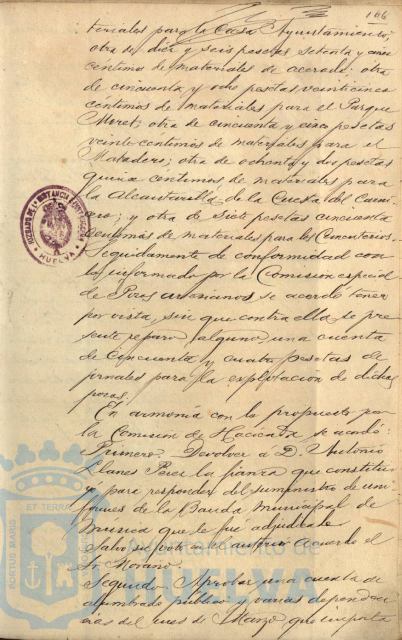 166
teriales para la Casa Ayuntamiento;
otra de diez y seis pesetas setenta y cinco
centimos de materiales de acerado; otra
de cincuenta y ocho pesetas veinticinco
centimos de materiales para el Parque
Moret; otra de cincuenta y cinco pesetas
veinte centimos de materiales para el
Matadero; otra de ochenta y dos pesetas
quince centimos de materiales para
la Alcantarilla de la Cuesta del Carni-
cero; y otra de siete pesetas cincuenta
centimos de materiales para los Cementerios.
Seguidamente de conformidad con
lo informado por la Comision especial
de Pozos artesianos se acordó tener
por vista, sin que contra ella se pre
sente reparo alguno una cuenta
de cincuenta y cuatro pesetas de
jornales para la explotacion de dichos
pozos.
En armonía con lo propuesto por
la Comision de Hacienda se acordó:
Primero. Devolver a D. Antonio
Llanes Perez la fianza que constitu-
yó para responder del suministro de uni-
formes de la Banda Municipal de
Musica que le fué adjudicado
Salvó su voto en el anterior acuerdo el
Sr. Morano.
Segundo. Aprobar una cuenta de
alumbrado publico y varias dependen-
cias del mes de Marzo que importa
JUZGADO DE 1ª INSTANCIA E INSTRUCCION
HUELVA
PORTUS MARIS ET TERRAE
Ayuntamiento de
HUELVA